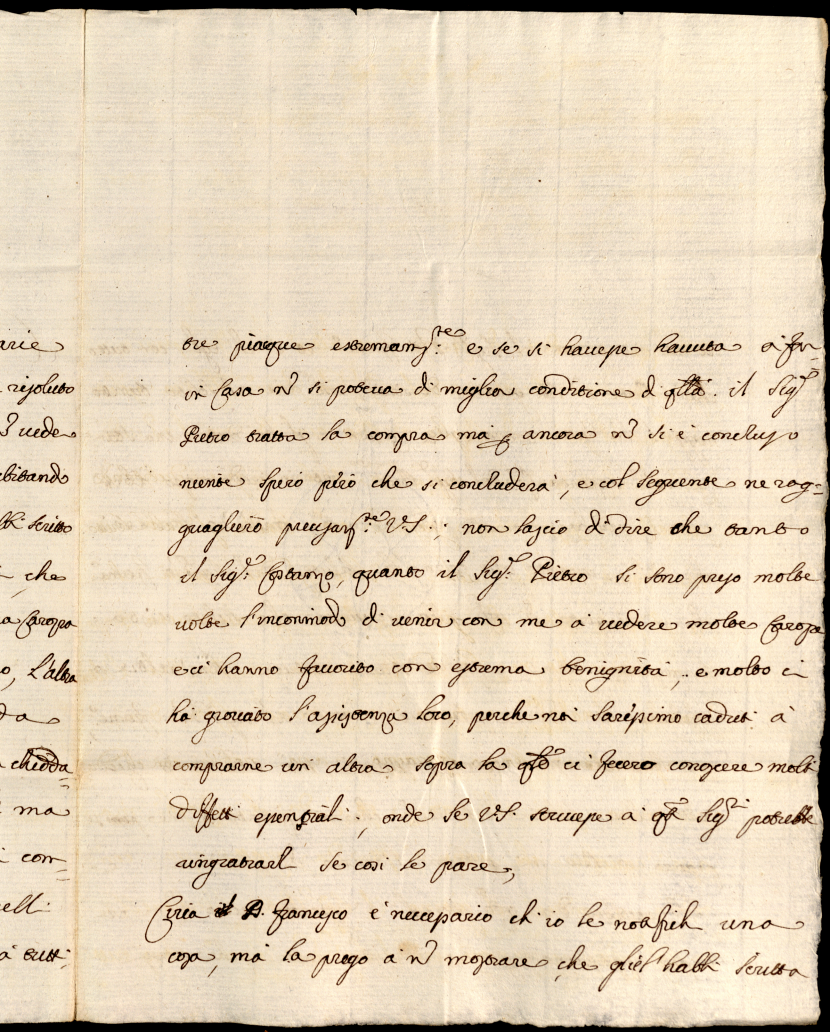 arie
risoluto
ñ vede
che
l'altra
da
ma
com=
tutti
tre piacque estremam.te e se si havesse havuta à far
in Casa ñ si poteva di meglio conditione d q.lla. il Sig.r
Pietro tratta la compra mà ancora ñ si è concluso
niente spero però che si concluderà, e col seguente ne rag=
guaglierò V.S.; non lascio di dire che tanto
il Sig.r Costanzo, quanto il Sig.r Pietro si sono preso molte
volte l'incommodo di venir con me à vedere molte Carozze
e ci hanno favorito con estrema benignità, e molto ci
hà giovato l'assistenza loro, perche noi saressimo caduti à
comprarne un altra sopra la q.le ci fecero conoscere molti
diffetti essentiali; onde se V.S. scrivesse à q.ti Sig.ri potrebbe
ringratiarli se così le pare,
Circa il D. Francesco è necessario ch'io le notifichi una
cosa, mà la prego à ñ mostrare che gliel'habbi scritta